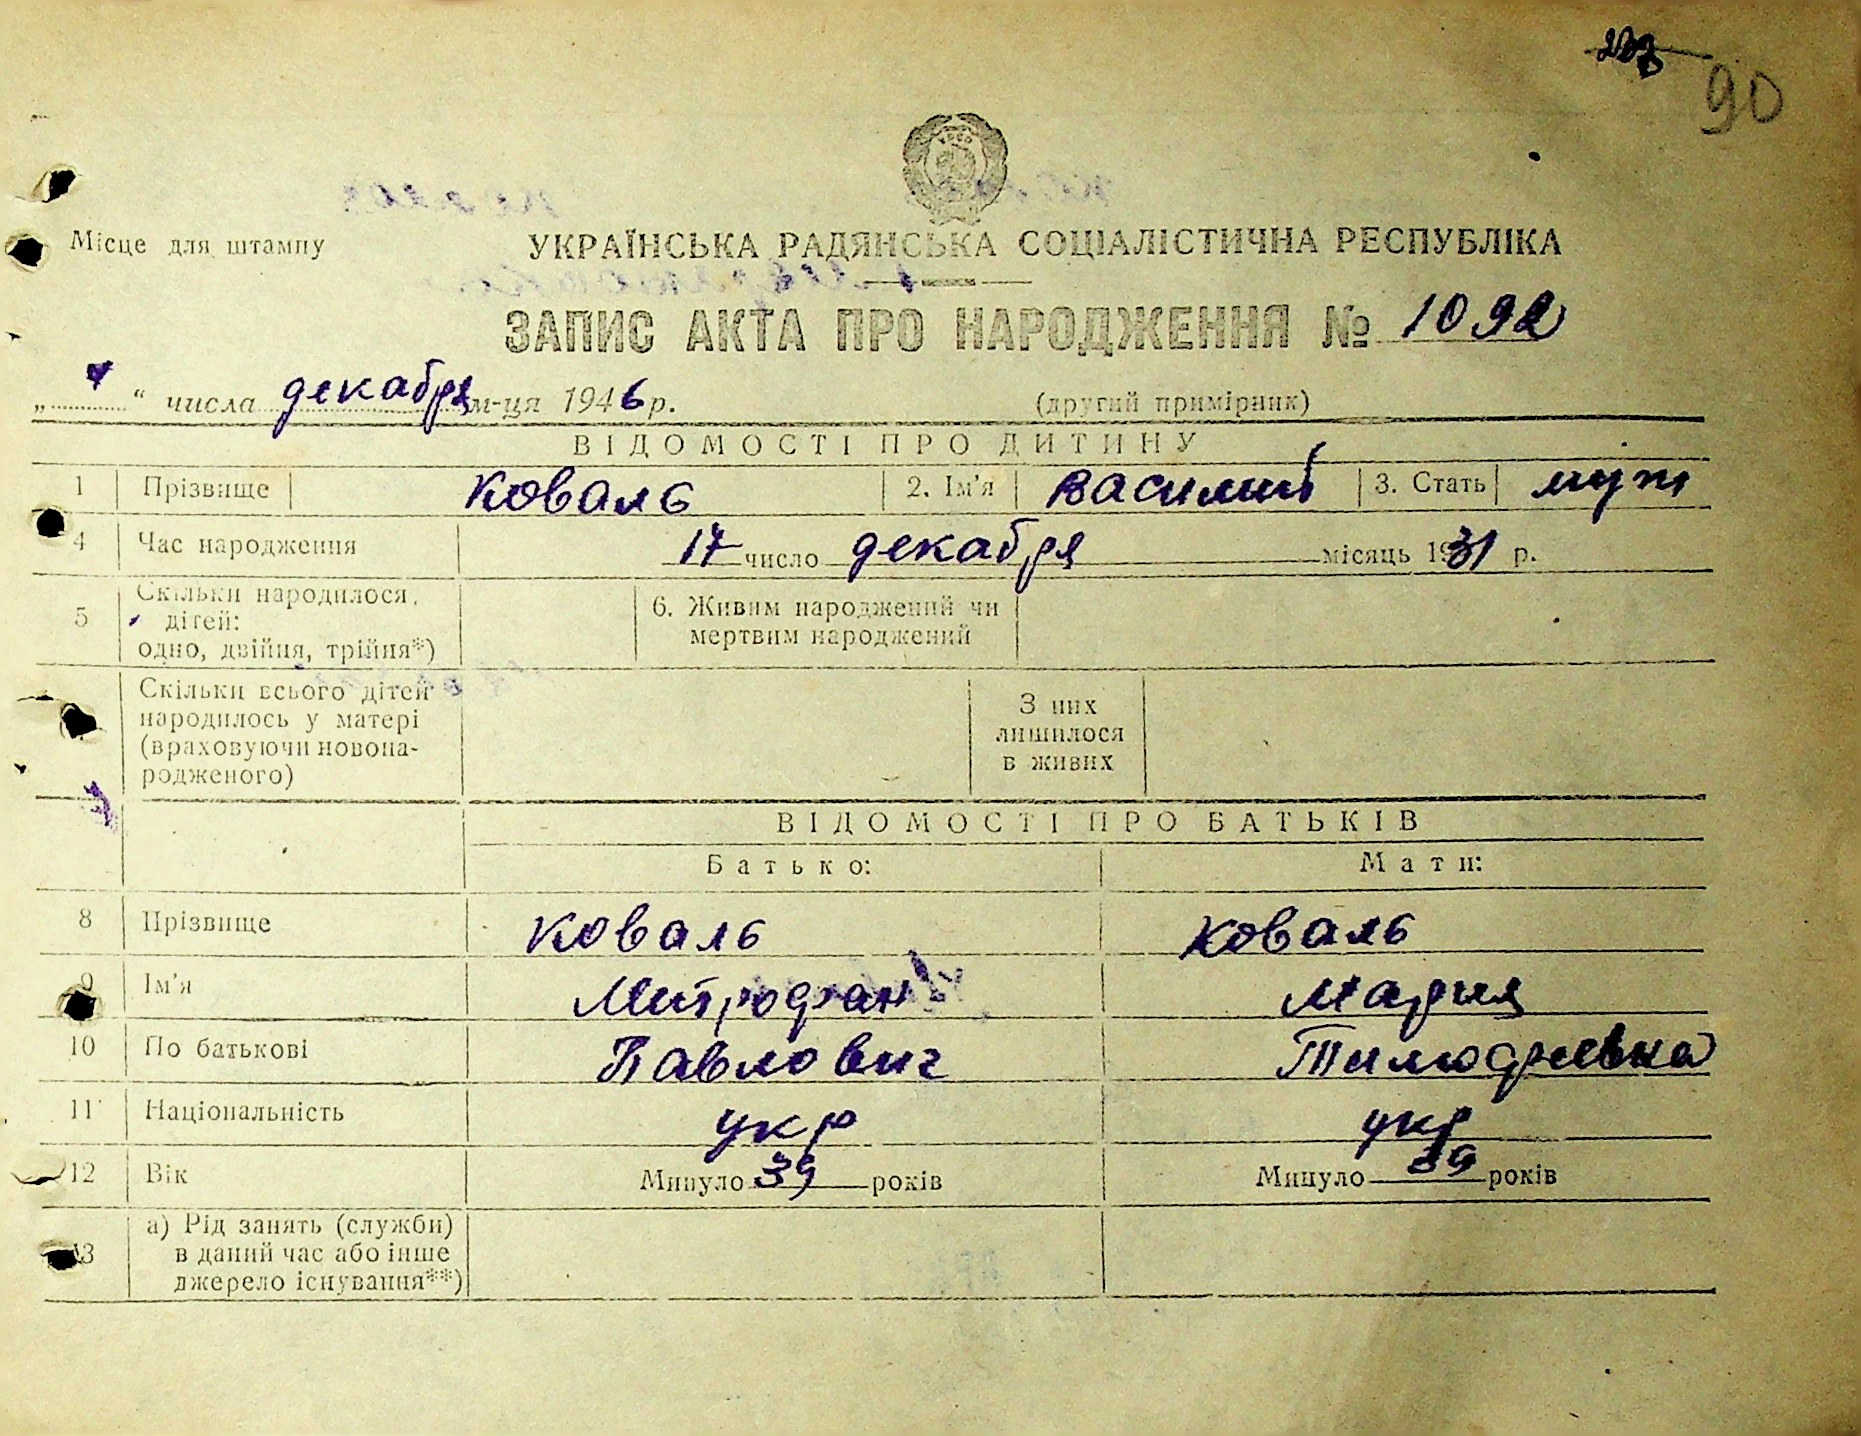 90
Місце для штампу
УКРАЇНСЬКА РАДЯНСЬКА СОЦІАЛІСТИЧНА РЕСПУБЛІКА
ЗАПИС АКТА ПРО НАРОДЖЕННЯ № 1092
„ “ числа декабря м-ця 1946 р. (другий примірник)
ВІДОМОСТІ ПРО ДИТИНУ
1 Прізвище Коваль 2. Ім'я Василий 3. Стать муж
4 Час народження 17 число декабря місяць 1931 р.
5 Скільки народилося дітей: одно, двійня, трійня*) 6. Живим народжений чи мертвим народжений
Скільки всього дітей народилось у матері (враховуючи новонародженого) З них лишилося в живих
ВІДОМОСТІ ПРО БАТЬКІВ
Батько: Мати:
8 Прізвище Коваль Коваль
9 Ім'я Митрофан Мария
10 По батькові Павлович Тимофеевна
11 Національність укр укр
12 Вік Минуло 39 років Минуло 39 років
13 а) Рід занять (служби) в даний час або інше джерело існування**)